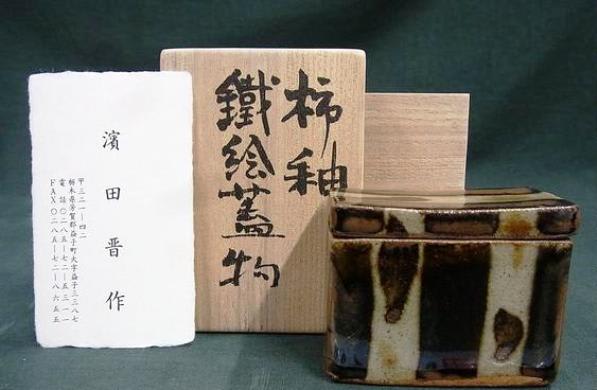 濱田晋作
〒三二一―四二
栃木県芳賀郡益子町大字益子三三八七
電話〇二八五―七二―五三一一
FAX〇二八五―七二―八六五五
柿釉
鐵絵蓋物